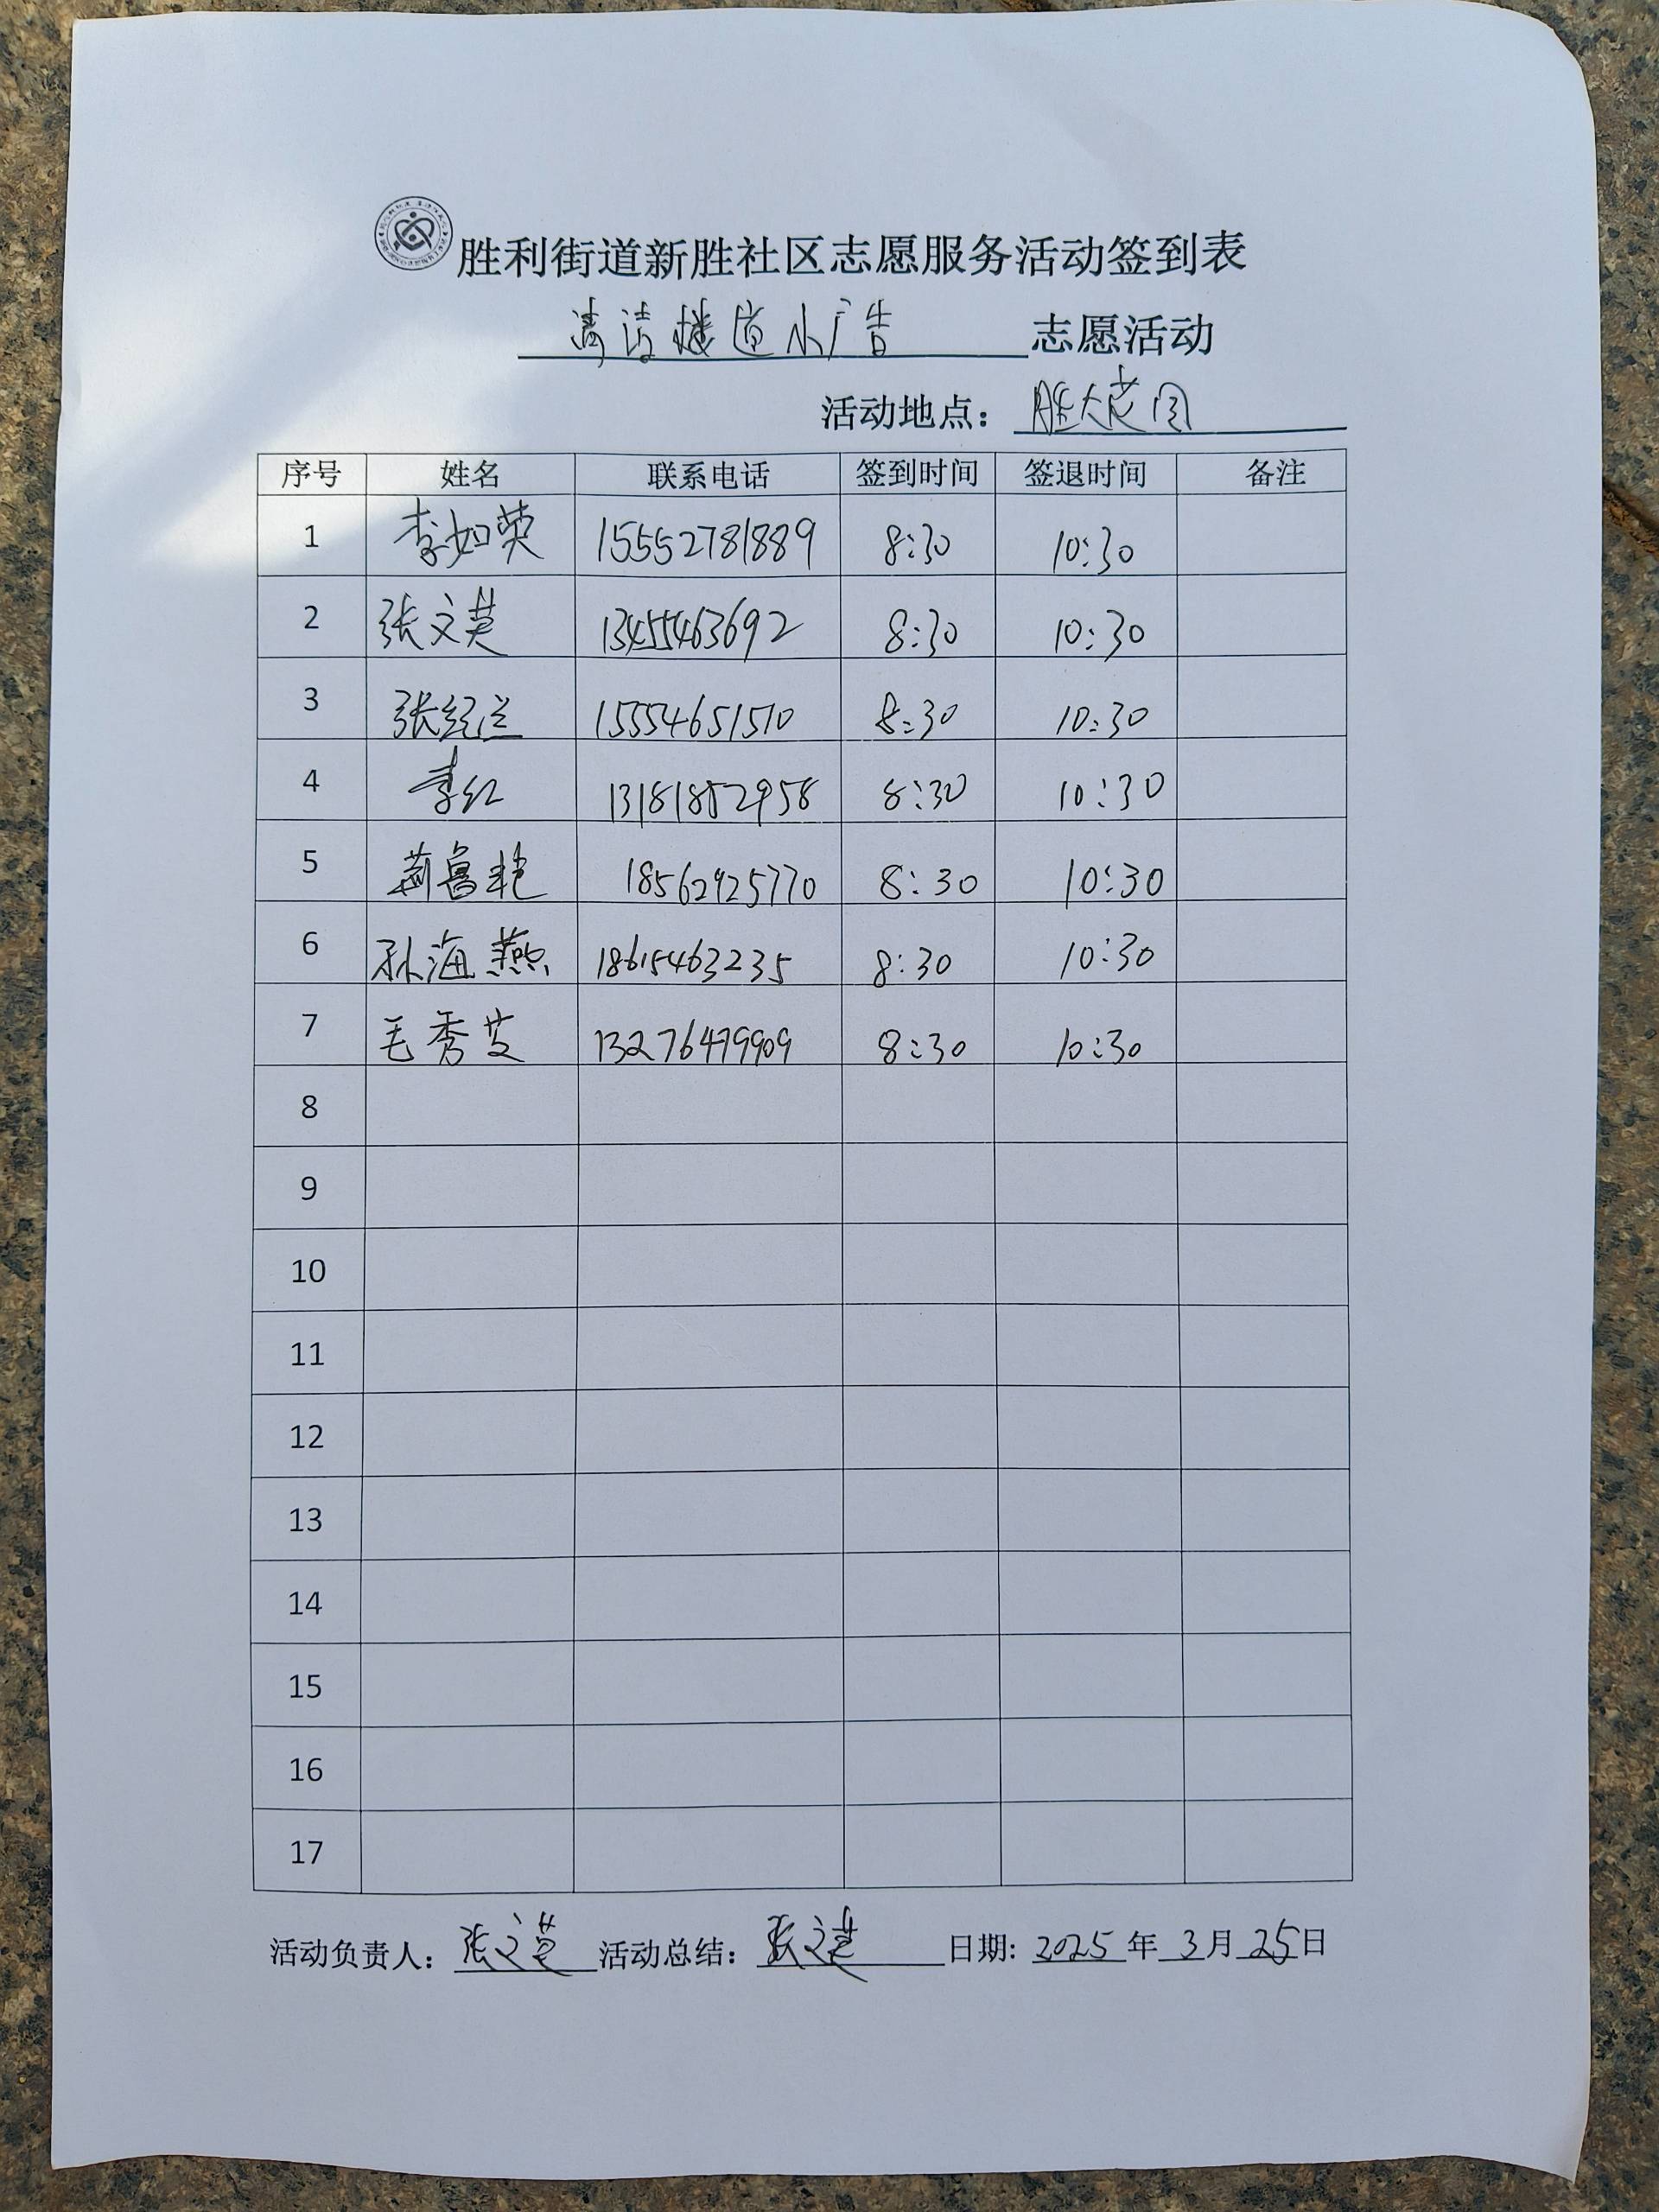 胜利街道新胜社区志愿服务活动签到表
清洁楼道小广告 志愿活动
活动地点： 胜大花园
序号 姓名 联系电话 签到时间 签退时间 备注
1 李如英 15552781889 8:30 10:30
2 张文英 13455463692 8:30 10:30
3 张纪兰 15554651510 8:30 10:30
4 李红 13181852958 8:30 10:30
5 荊鲁艳 18562925770 8:30 10:30
6 孙海燕 18615463235 8:30 10:30
7 毛秀芝 13276479909 8:30 10:30
8
9
10
11
12
13
14
15
16
17
活动负责人： 张文英 活动总结： 张文英 日期: 2025 年 3 月 25 日